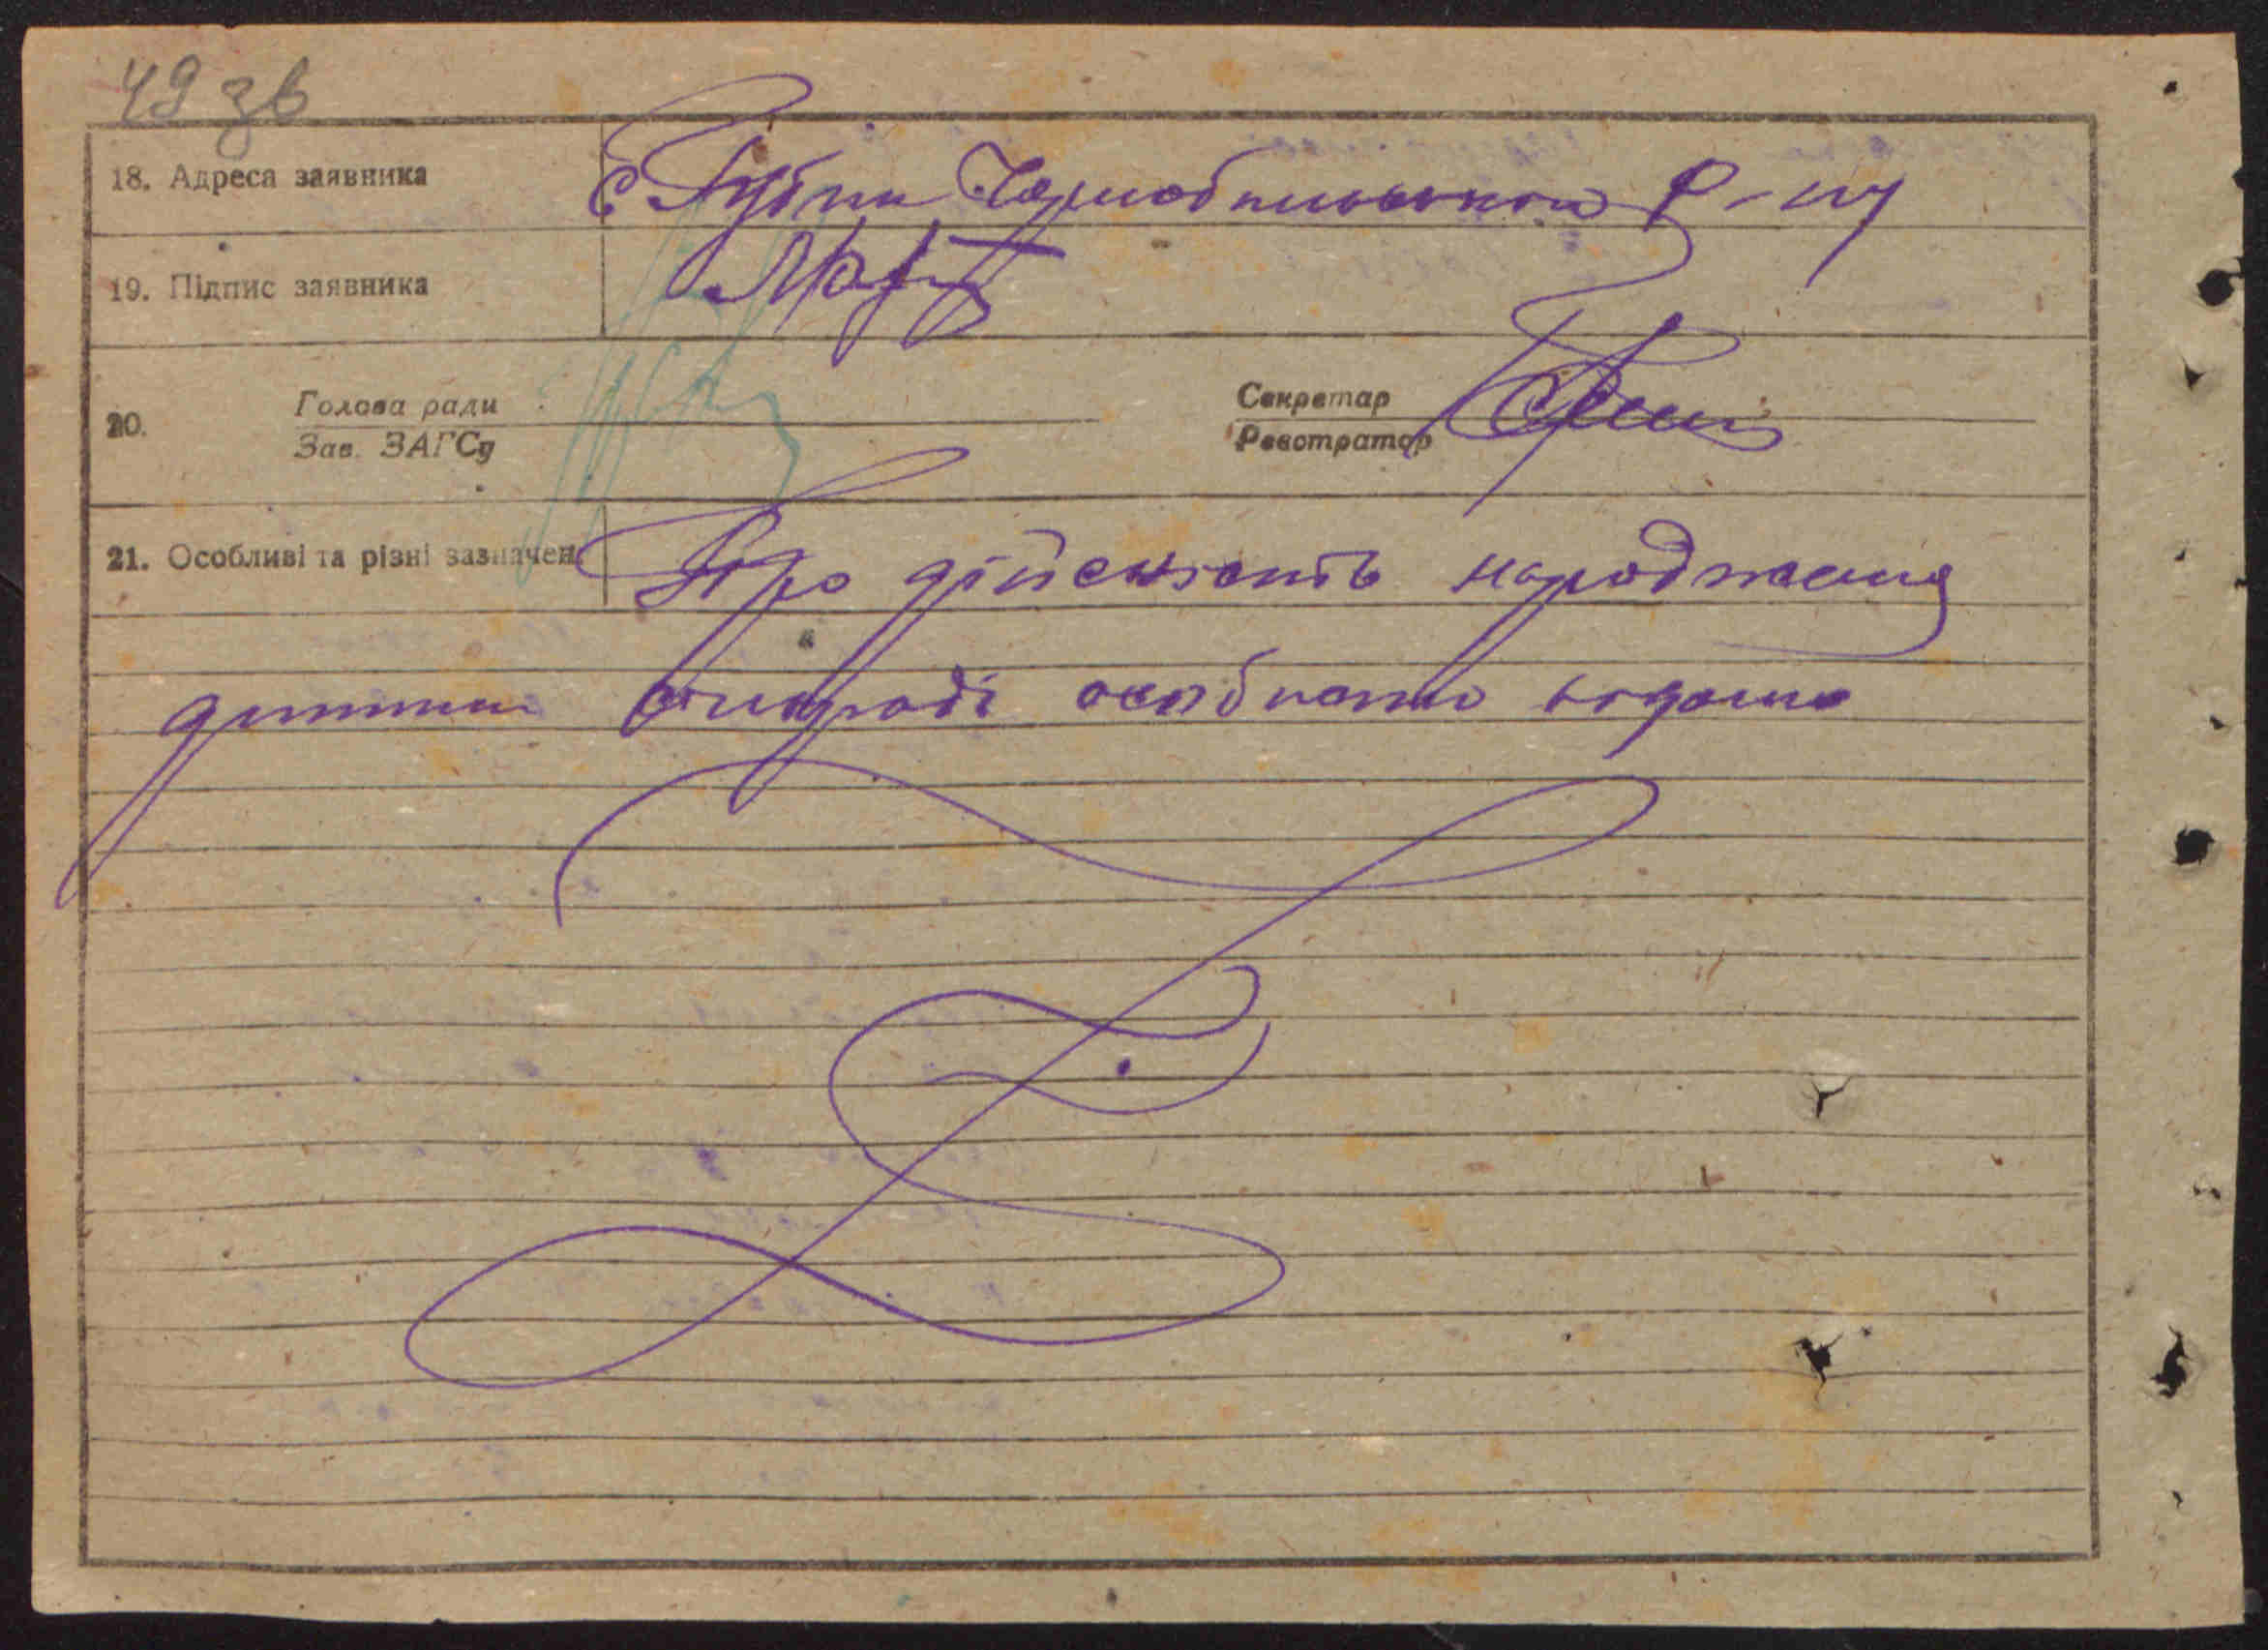 49 зв
18. Адреса заявника С Губин Чорнобильського Р-ну
19. Підпис заявника
20. Голова ради Секретар
Зав. ЗАГСу Реєстратор
21. Особливі та різні зазначен. Про дійсність народження
дитини сільраді особисто відомо